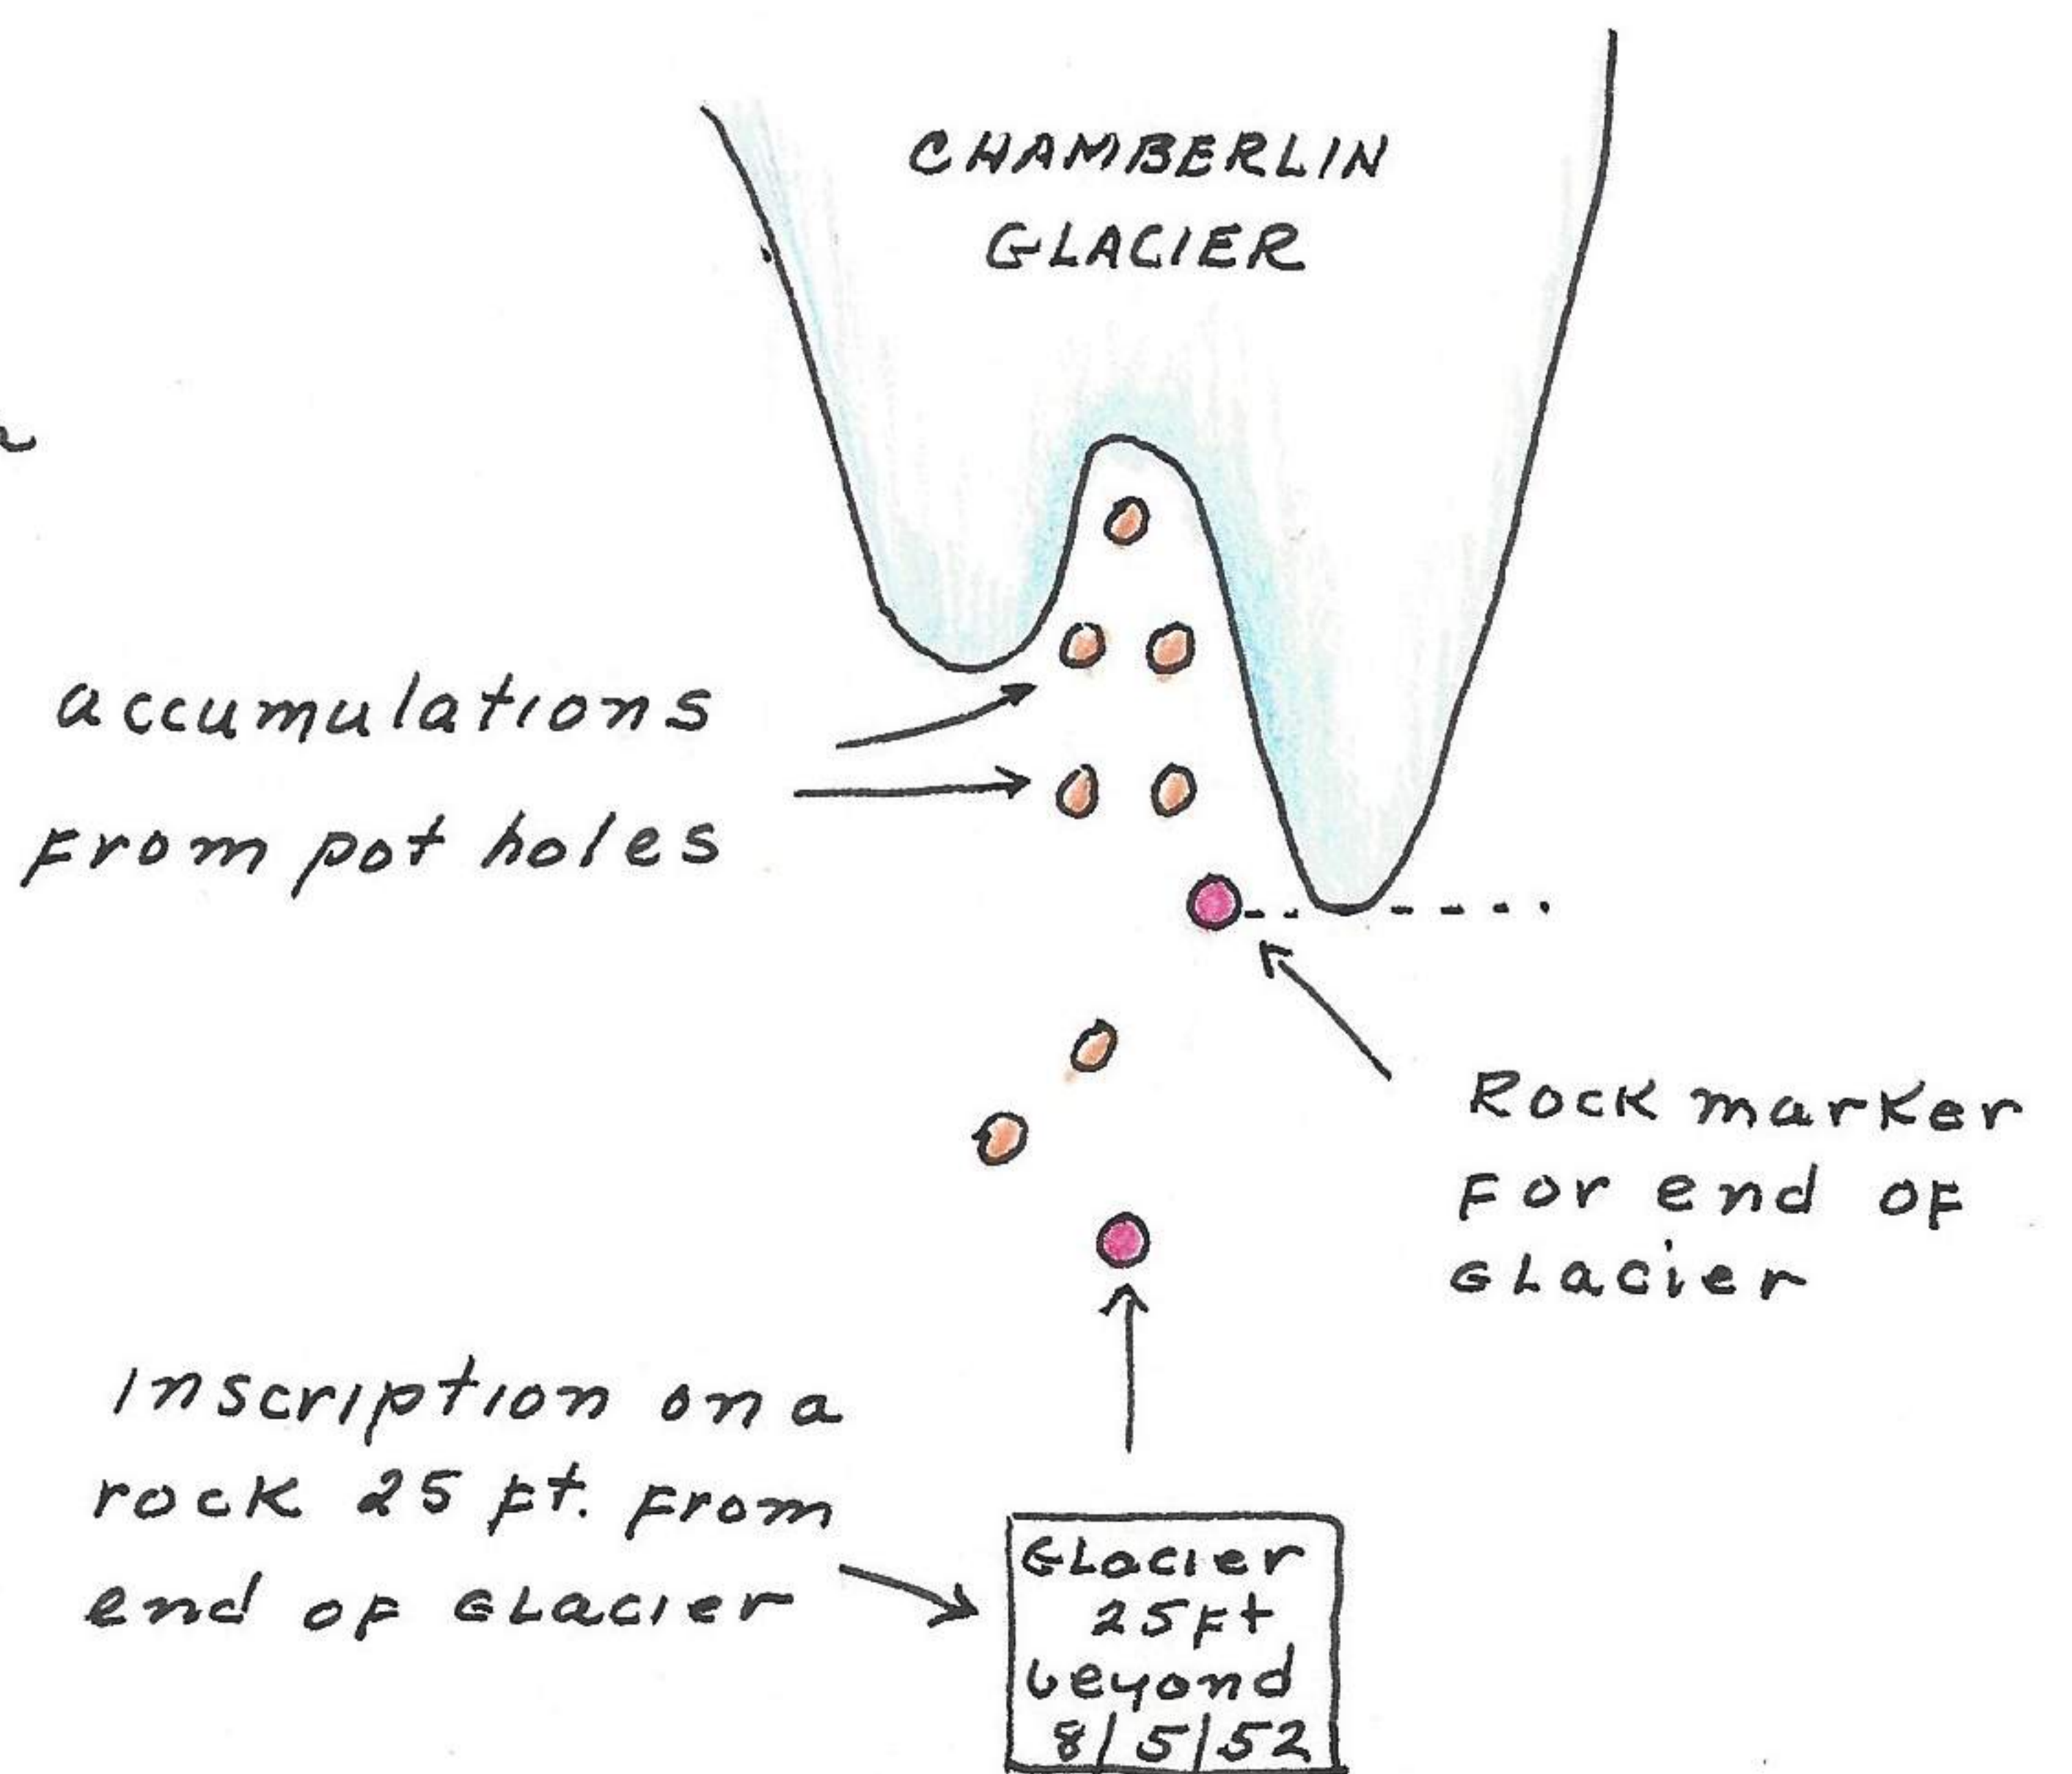 CHAMBERLIN
GLACIER
accumulations
From pot holes
Rock marker
For end of
Glacier
Inscription on a
rock 25 ft. From
end of Glacier
Glacier
25Ft
beyond
8/5/52